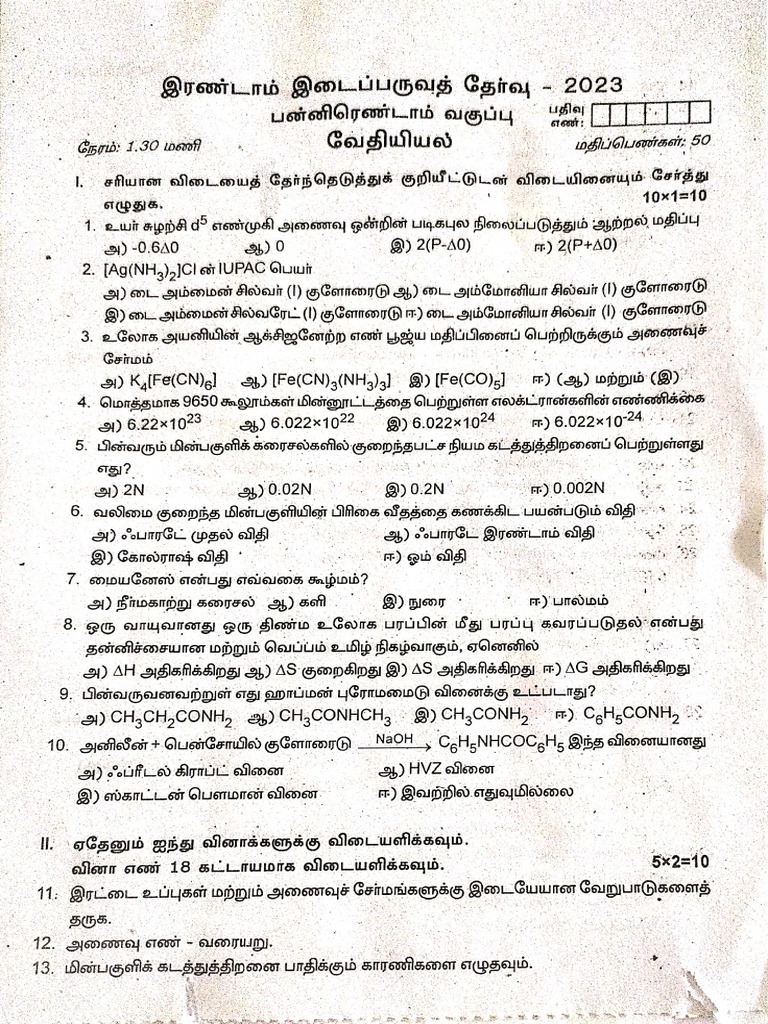 இரண்டாம் இடைப்பருவத் தேர்வு - 2023
பன்னிரெண்டாம் வகுப்பு பதிவு எண்:
நேரம்: 1.30 மணி வேதியியல் மதிப்பெண்கள்: 50
I. சரியான விடையைத் தேர்ந்தெடுத்துக் குறியீட்டுடன் விடையினையும் சேர்த்து
எழுதுக. 10×1=10
1. உயர் சுழற்சி d⁵ எண்முகி அணைவு ஒன்றின் படிகபுல நிலைப்படுத்தும் ஆற்றல் மதிப்பு
அ) -0.6Δ0 ஆ) 0 இ) 2(P-Δ0) ஈ) 2(P+Δ0)
2. [Ag(NH₃)₂]Cl ன் IUPAC பெயர்
அ) டை அம்மைன் சில்வர் (I) குளோரைடு ஆ) டை அம்மோனியா சில்வர் (I) குளோரைடு
இ) டை அம்மைன் சில்வரேட் (I) குளோரைடு ஈ) டை அம்மோனியா சில்வர் (I) குளோரைடு
3. உலோக அயனியின் ஆக்சிஜனேற்ற எண் பூஜ்ய மதிப்பினைப் பெற்றிருக்கும் அணைவுச்
சேர்மம்
அ) K₄[Fe(CN)₆] ஆ) [Fe(CN)₃(NH₃)₃] இ) [Fe(CO)₅] ஈ) (ஆ) மற்றும் (இ)
4. மொத்தமாக 9650 கூலூம்கள் மின்னூட்டத்தை பெற்றுள்ள எலக்ட்ரான்களின் எண்ணிக்கை
அ) 6.22×10²³ ஆ) 6.022×10²² இ) 6.022×10²⁴ ஈ) 6.022×10⁻²⁴
5. பின்வரும் மின்பகுளிக் கரைசல்களில் குறைந்தபட்ச நியம கடத்துத்திறனைப் பெற்றுள்ளது
எது?
அ) 2N ஆ) 0.02N இ) 0.2N ஈ) 0.002N
6. வலிமை குறைந்த மின்பகுளியின் பிரிகை வீதத்தை கணக்கிட பயன்படும் விதி
அ) ஃபாரடே முதல் விதி ஆ) ஃபாரடே இரண்டாம் விதி
இ) கோல்ராஷ் விதி ஈ) ஓம் விதி
7. மையனேஸ் என்பது எவ்வகை கூழ்மம்?
அ) நீர்மகாற்று கரைசல் ஆ) களி இ) நுரை ஈ) பால்மம்
8. ஒரு வாயுவானது ஒரு திண்ம உலோக பரப்பின் மீது பரப்பு கவரப்படுதல் என்பது
தன்னிச்சையான மற்றும் வெப்பம் உமிழ் நிகழ்வாகும், ஏனெனில்
அ) ΔH அதிகரிக்கிறது ஆ) ΔS குறைகிறது இ) ΔS அதிகரிக்கிறது ஈ) ΔG அதிகரிக்கிறது
9. பின்வருவனவற்றுள் எது ஹாப்மன் புரோமமைடு வினைக்கு உட்படாது?
அ) CH₃CH₂CONH₂ ஆ) CH₃CONHCH₃ இ) CH₃CONH₂ ஈ) C₆H₅CONH₂
10. அனிலீன் + பென்சோயில் குளோரைடு NaOH → C₆H₅NHCOC₆H₅ இந்த வினையானது
அ) ஃப்ரீடல் கிராப்ட் வினை ஆ) HVZ வினை
இ) ஸ்காட்டன் பௌமான் வினை ஈ) இவற்றில் எதுவுமில்லை
II. ஏதேனும் ஐந்து வினாக்களுக்கு விடையளிக்கவும்.
வினா எண் 18 கட்டாயமாக விடையளிக்கவும். 5×2=10
11. இரட்டை உப்புகள் மற்றும் அணைவுச் சேர்மங்களுக்கு இடையேயான வேறுபாடுகளைத்
தருக.
12. அணைவு எண் - வரையறு.
13. மின்பகுளிக் கடத்துத்திறனை பாதிக்கும் காரணிகளை எழுதவும்.